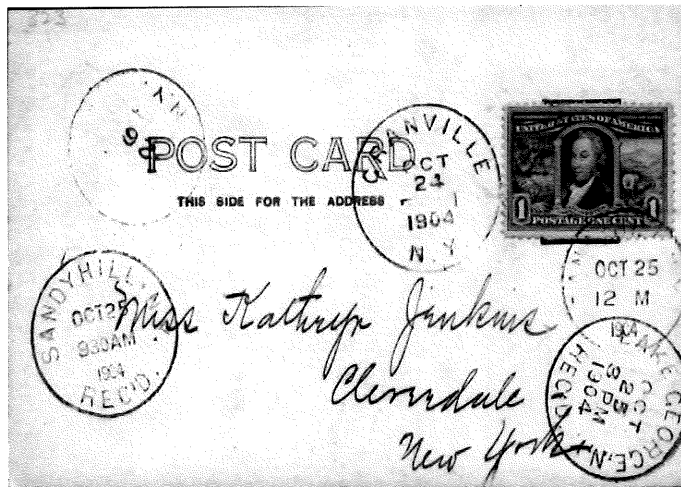 323
POST CARD
THIS SIDE FOR THE ADDRESS
GRANVILLE
OCT
24
1904
N.Y.
UNITED STATES OF AMERICA
1 POSTAGE ONE CENT 1
SANDY HILL
OCT 25
930AM
1904
REC'D.
OCT 25
12 M
1904
LAKE GEORGE, N.Y.
OCT
25
3 PM
1904
REC'D
Miss Kathryn Jenkins
Cleverdale
New York